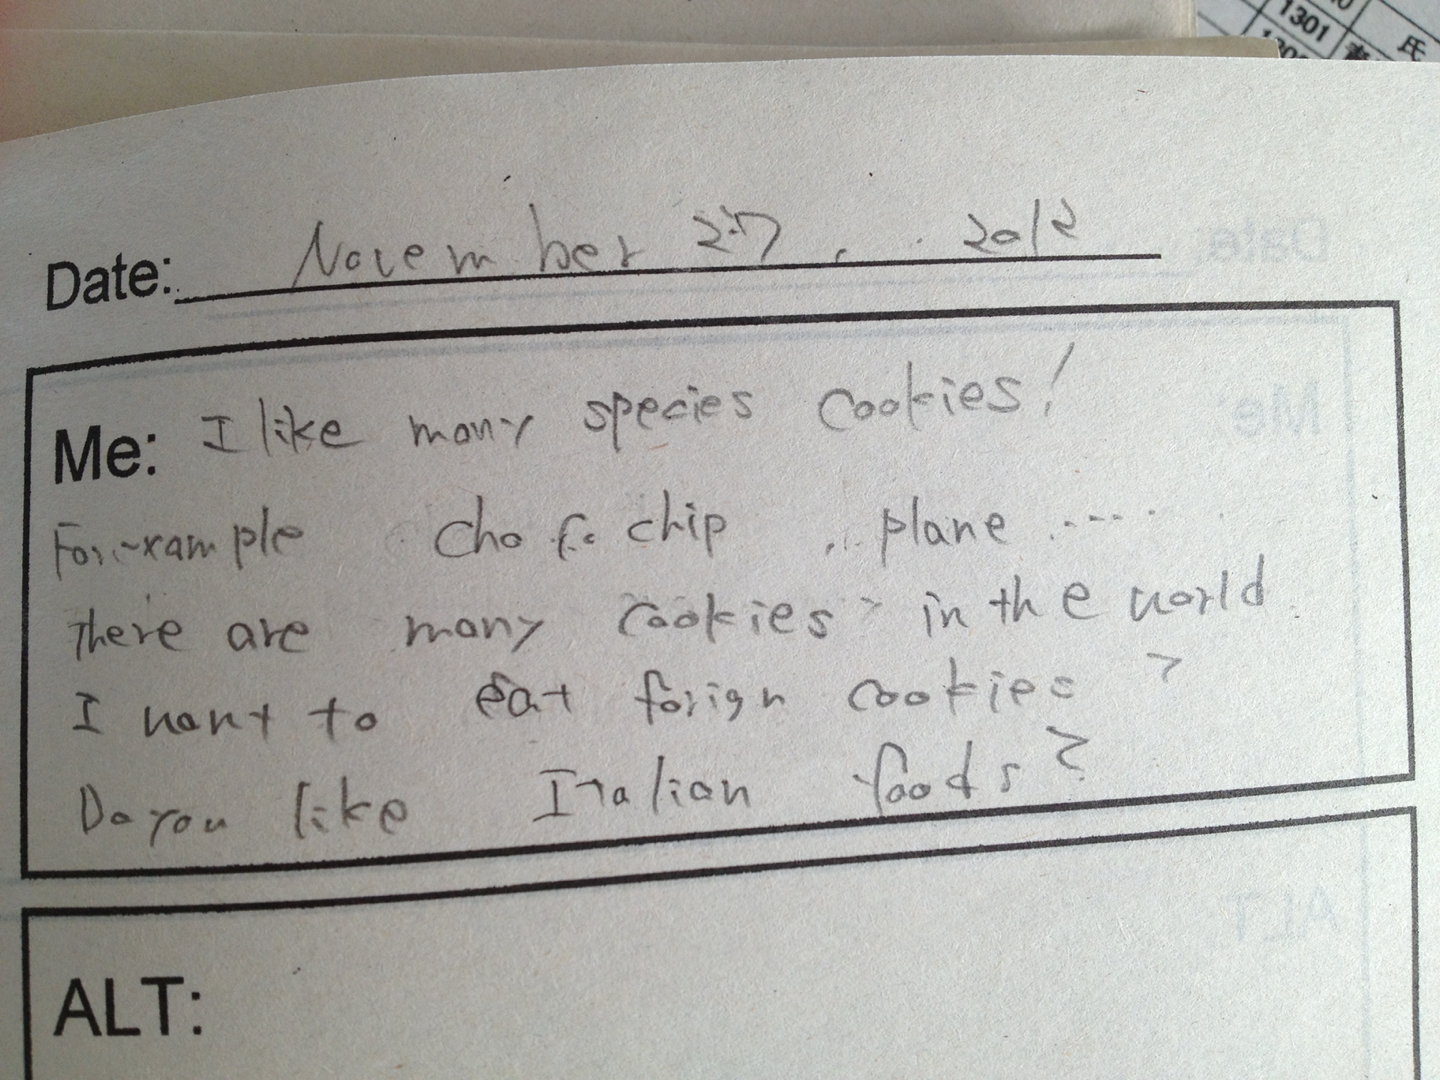 1301
氏
Date: November 27, 2012
Me: I like many species cookies!
For example choco chip , plane .....
There are many cookies in the world.
I want to eat forign cookies
Do you like Italian foods?
ALT: